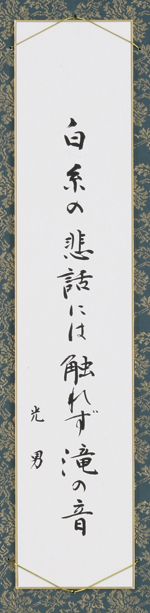 白糸の悲話には触れず滝の音
光男